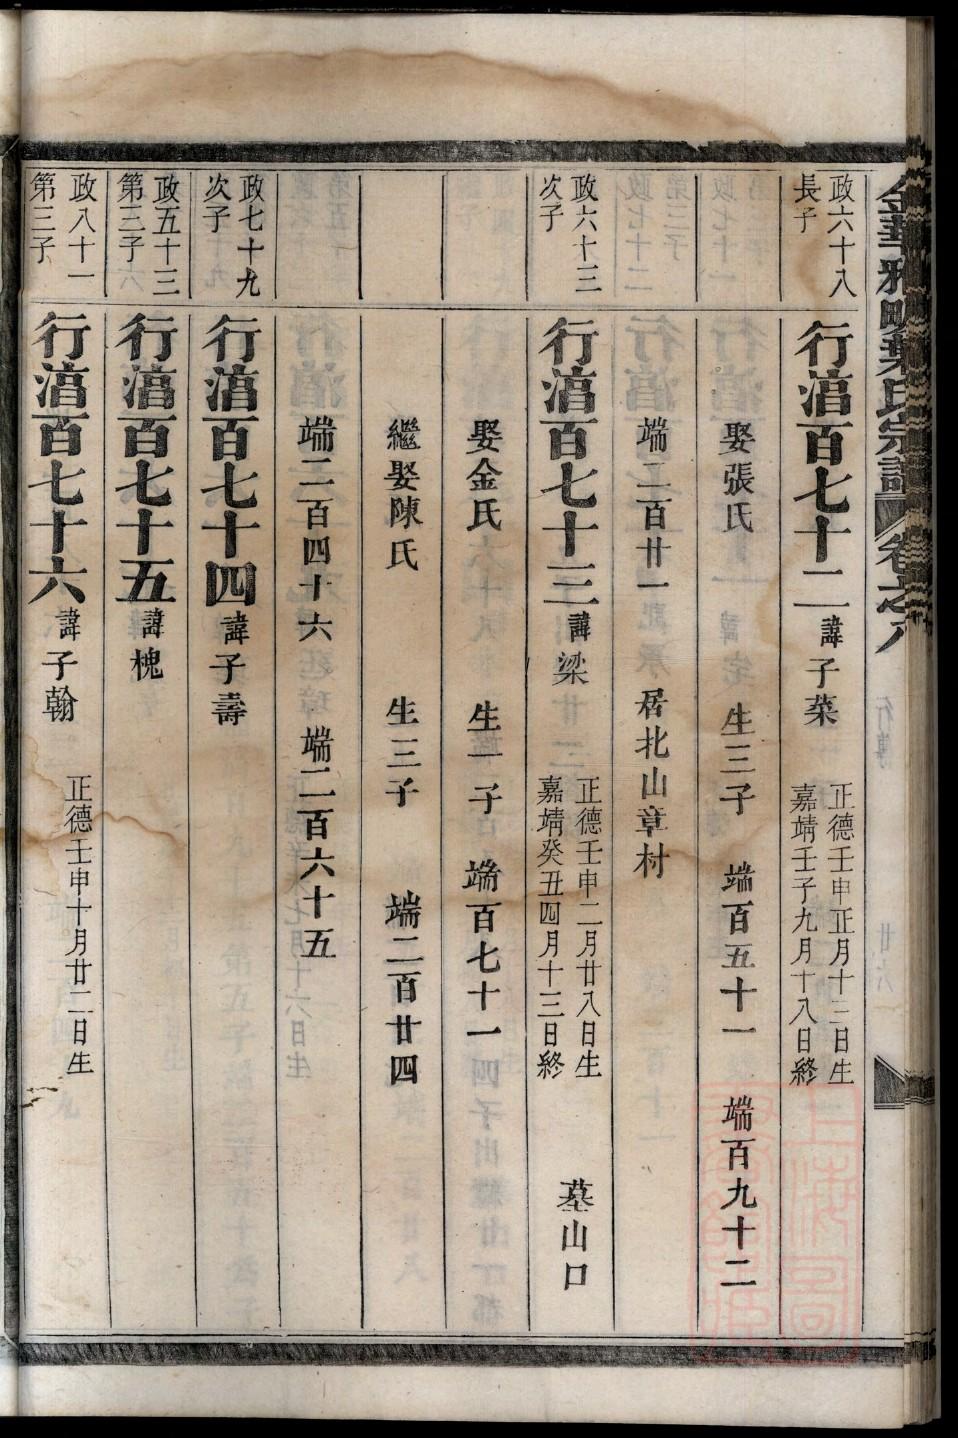 金華雅畈葉氏宗譜 卷之八
行傳
廿六
政六十八
長子
行湻百七十二 諱子菜
正德壬申正月十二日生
嘉靖壬子九月十八日終
娶張氏 生三子 端百五十一 端百九十二
端二百廿一 居北山章村
政六十三
次子
行湻百七十三 諱梁
正德壬申二月廿八日生
嘉靖癸丑四月十三日終
墓山口
娶金氏 生一子 端百七十一
繼娶陳氏 生三子 端二百廿四
端二百四十六 端二百六十五
政七十九
次子
行湻百七十四 諱子壽
政五十三
第三子
行湻百七十五 諱槐
政八十一
第三子
行湻百七十六 諱子翰
正德壬申十月廿二日生